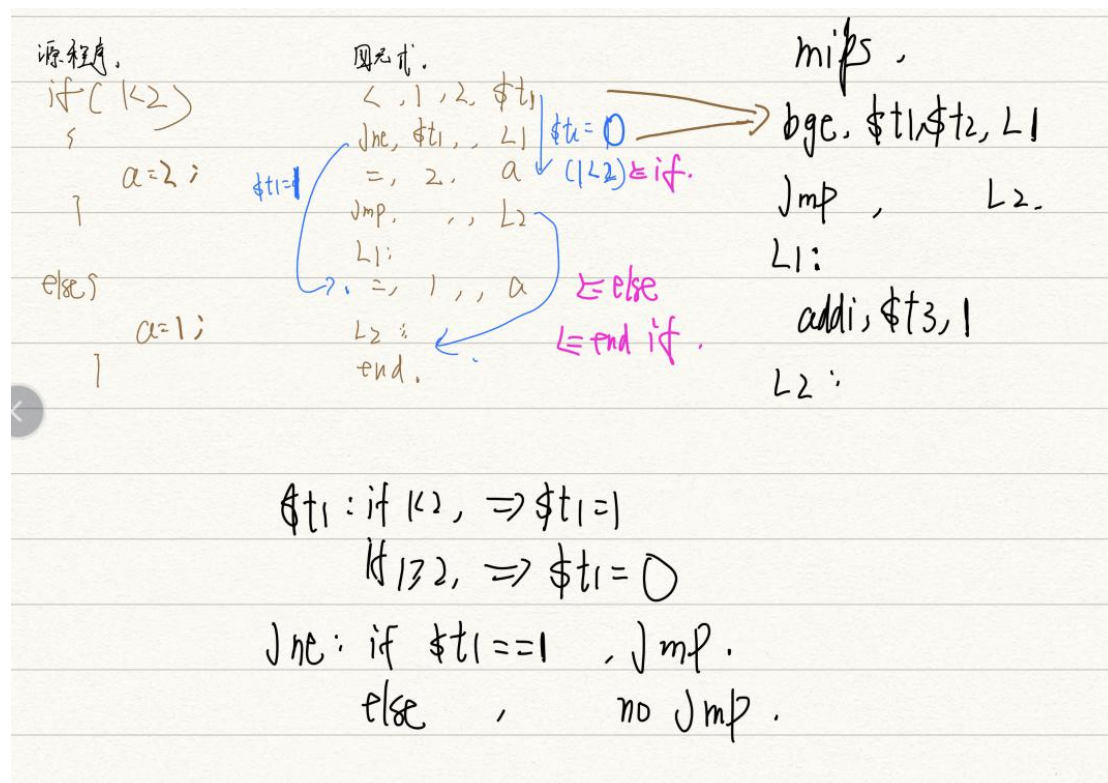 源程序.
if( 1<2)
{
a=2;
}
else{
a=1;
}
四元式.
<, 1, 2, $t1
Jne, $t1, , L1
=, 2. a
Jmp. , , L2
L1:
=, 1, , a
L2:
end.
$t1=1
$t1=0
(1<2) <= if.
<= else
<= end if.
mips.
bge. $t1,$t2, L1
Jmp , L2.
L1:
addi, $t3, 1
L2:
$t1: if 1<2, => $t1=1
if 1≥2, => $t1=0
Jne: if $t1==1 , Jmp.
else , no Jmp.